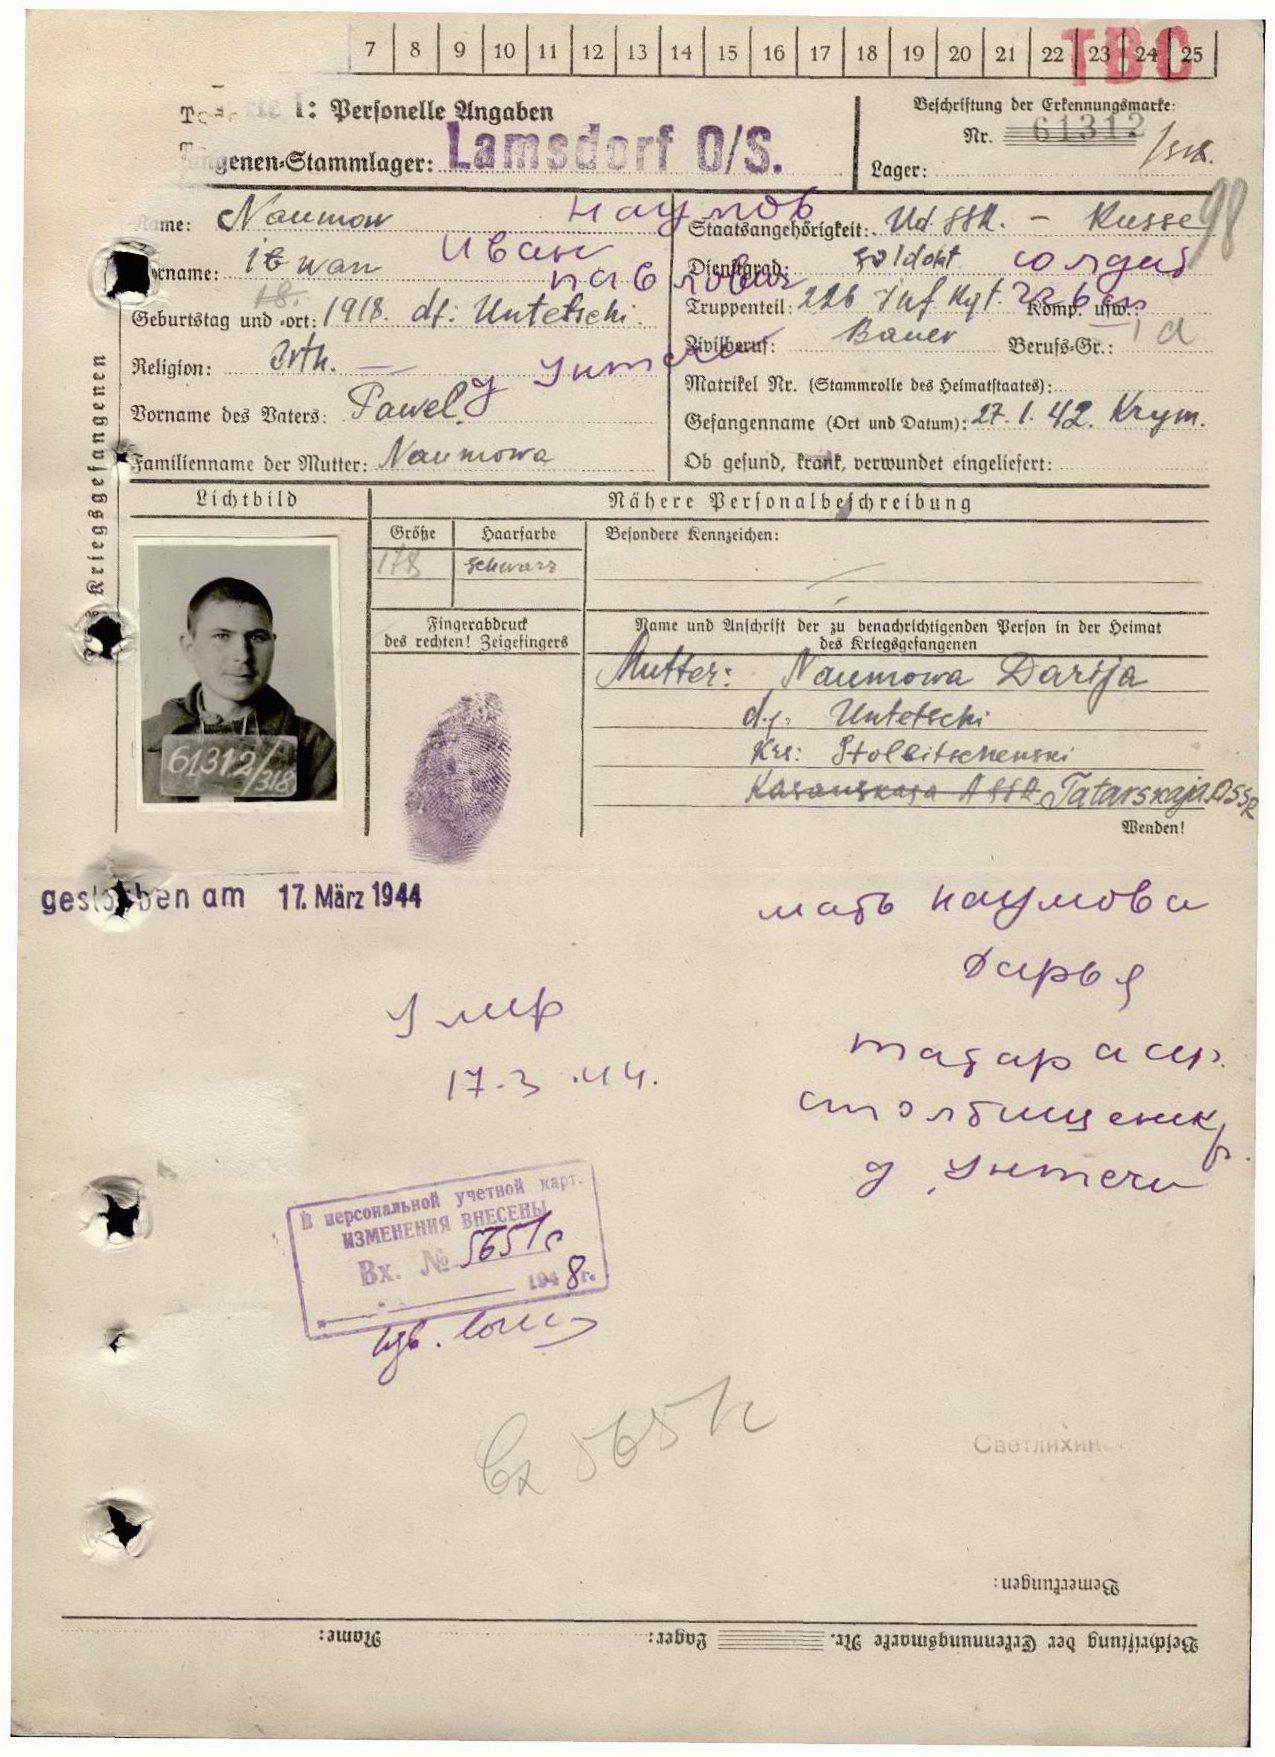 7 8 9 10 11 12 13 14 15 16 17 18 19 20 21 22 23 24 25
TBC
I: Personelle Angaben
Beschriftung der Erkennungsmarke:
Nr. 61312
/318.
Lamsdorf O/S.
genen-Stammlager:
Lager:
98
Name: Naumow
Наумов
Staatsangehörigkeit: UdSSR. - Russe
Vorname: Iwan
Иван
Павлович
Dienstgrad: Soldat солдат
18.
Geburtstag und -ort: 1918. df: Untetschi.
Truppenteil: 226 Inf Rgt. Komp. usw.:
Religion: Orth.
Zivilberuf: Bauer Berufs-Gr.: I d
д Унтечи
Matrikel Nr. (Stammrolle des Heimatstaates):
Vorname des Vaters: Pawel.
Gefangenname (Ort und Datum): 27.1.42. Krym.
Familienname der Mutter: Naumowa
Ob gesund, krank, verwundet eingeliefert:
Kriegsgefangenen
Lichtbild
Nähere Personalbeschreibung
Größe Haarfarbe Besondere Kennzeichen:
178 schwarz
Fingerabdruck
des rechten! Zeigefingers
Name und Anschrift der zu benachrichtigenden Person in der Heimat
des Kriegsgefangenen
Mutter: Naumowa Darija
df: Untetschi
Krs: Stolbitschenski
Kasanskaja ASSR Tatarskaja ASSR
Wenden!
61312/318
gestorben am 17. März 1944
мать Наумова
Дарья
татар асср.
столбищенск р.
д Унтечи
Умер
17.3.44.
В персональной учетной карт.
ИЗМЕНЕНИЯ ВНЕСЕНЫ
Вх. № 5651с
1948г.
Вх 5651с
Светлихин
Bemerkungen:
Beschriftung der Erkennungsmarke Nr. Lager: Name: